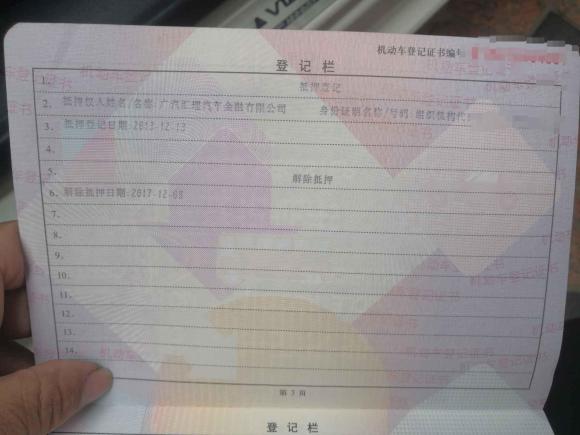 机动车登记证书编号
登记栏
1. 抵押登记
2. 抵押权人姓名/名称:广汽汇理汽车金融有限公司 身份证明名称/号码:组织机构代
3. 抵押登记日期:2013-12-13
4.
5. 解除抵押
6. 解除抵押日期:2017-12-08
7.
8.
9.
10.
11.
12.
13.
14.
第 3 页
登记栏